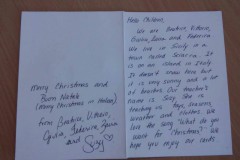 Merry Christmas and
Buon Natale
(Merry Christmas in Italian)
from Beatrice, Vittoria,
Giulia, Federica,
and Suzy
Hello Children,
We are Beatrice, Vittoria,
Giulia, and Federica
We live in Sicily in a
town called
is an island in Italy.
It doesn't snow here but
it is very sunny and a lot
of beaches. Our teacher's
name is Suzy. She is
teaching us toys, seasons,
weather and clothes. We
love the song "What do you
want for Christmas?" We
hope you enjoy our cards.